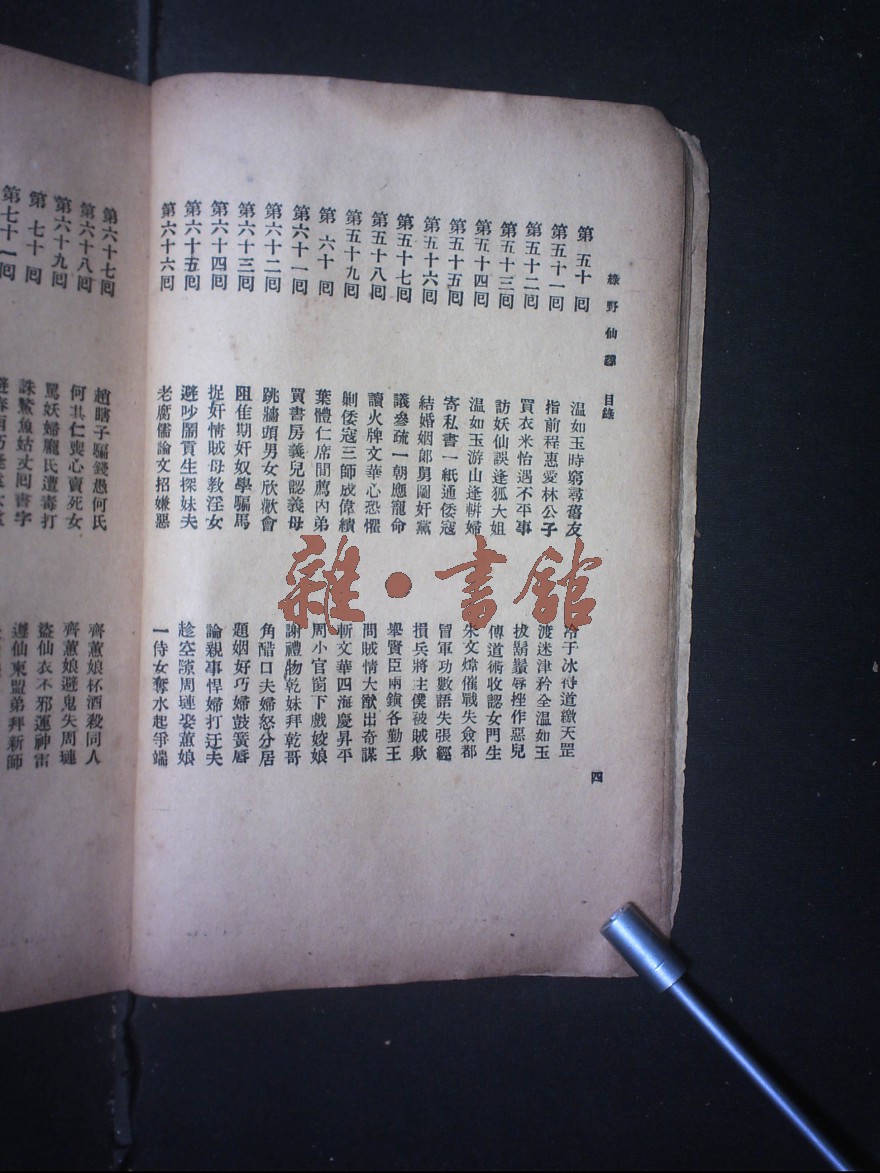 綠野仙蹤 目錄
第五十回 温如玉時窮尋舊友 冷于冰得道繳天罡
第五十一回 指前程惠愛林公子 渡迷津矜全温如玉
第五十二回 買衣米怡遇不平事 拔鬍鬚辱挫作惡兒
第五十三回 訪妖仙誤逢狐大姐 傳道術收認女門生
第五十四回 温如玉游山逢蟒婦 朱文煒催戰失僉都
第五十五回 寄私書一紙通倭寇 冒軍功數語失張經
第五十六回 結婚姻郎舅圖奸黨 損兵將主僕被賊欺
第五十七回 議參疏一朝膺寵命 舉賢臣兩鎮各勤王
第五十八回 讀火牌文華心恐懼 問賊情大猷出奇謀
第五十九回 剿倭寇三帥成偉績 斬文華四海慶昇平
第六十回 葉體仁席間薦內弟 周小官窗下戲姣娘
第六十一回 買書房義兒認義母 謝禮物乾妹拜乾哥
第六十二回 跳牆頭男女欣歡會 角醋口夫婦怒分居
第六十三回 阻佳期奸奴學騙馬 題姻好巧婦鼓簧唇
第六十四回 捉奸情賊母教淫女 論親事悍婦打迂夫
第六十五回 避吵鬧貢生探妹夫 趁空隙周璉娶蕙娘
第六十六回 老腐儒論文招嫌惡 一侍女奪水起爭端
四
第六十七回 趙瞎子騙錢愚何氏 齊蕙娘杯酒殺同人
第六十八回 何其仁喪心賣死女 齊蕙娘避鬼失周璉
第六十九回 罵妖婦龐氏遭毒打 盜仙衣不邪運神雷
第七十回 誅鰲魚姑丈回書字 遵仙柬盟弟拜新師
第七十一回
雜·書館